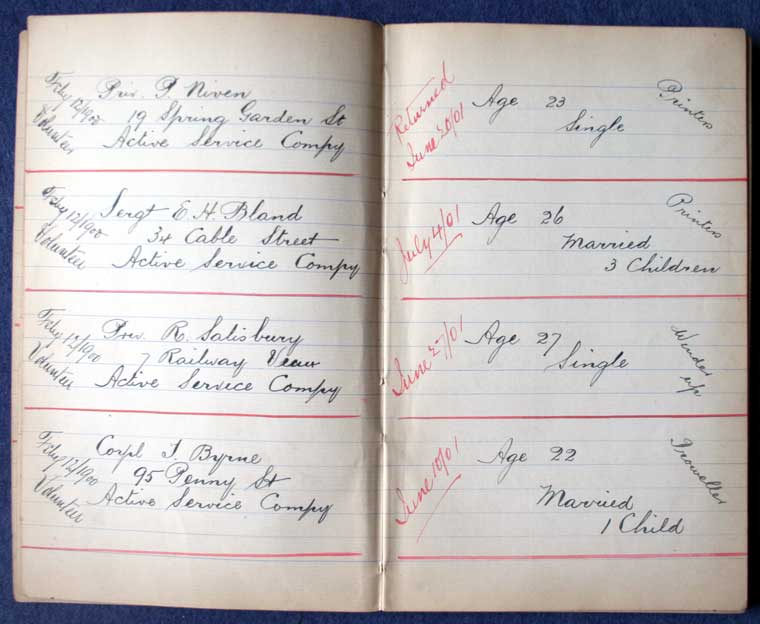 Feby 12/1900
Volunteer
Priv. P. Niven
19 Spring Garden St
Active Service Compy
Returned
June 20/01
Age 23
Single
Printer
Feby 12/1900
Volunteer
Sergt E. H. Bland
34 Cable Street
Active Service Compy
July 4/01
Age 26
Married
3 Children
Printer
Feby 12/1900
Volunteer
Priv. R. Salisbury
7 Railway View
Active Service Compy
June 27/01
Age 27
Single
Winder up
Feby 12/1900
Volunteer
Corpl T. Byrne
95 Penny St
Active Service Compy
June 10/01
Age 22
Married
1 Child
Troweller